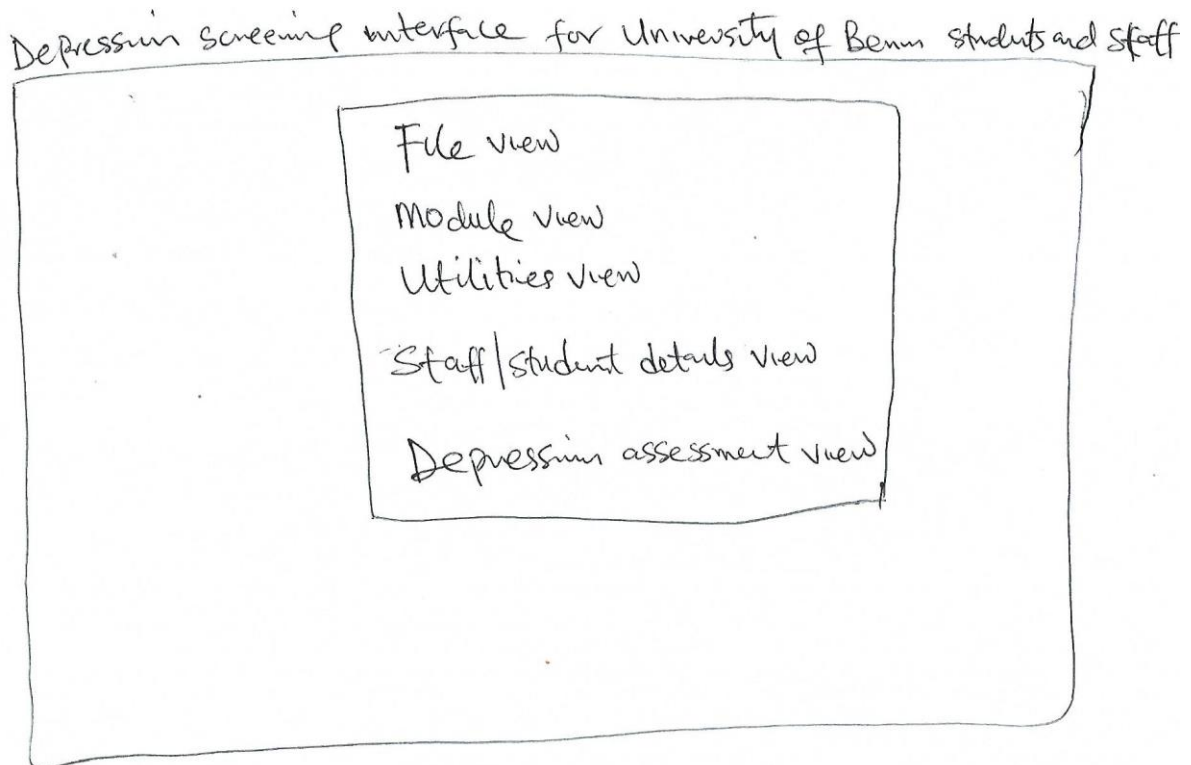 Depression screening interface for University of Benin students and staff
File view
Module view
Utilities view
Staff/student details view
Depression assessment view